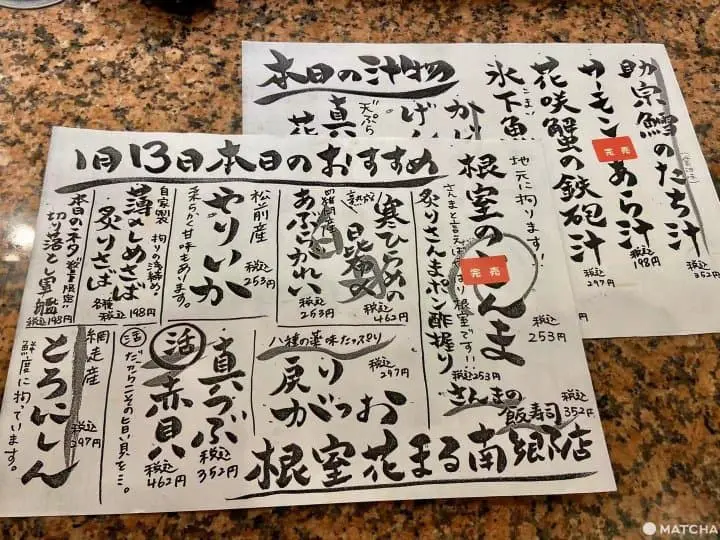 本日の汁物
助宗鱈のたち汁
税込
352円
サーモンあら汁
税込
198円
完売
花咲蟹の鉄砲汁
税込
297円
氷下魚
こまい
天ぷら
真
花
げん
かけ
1月13日本日のおすすめ
地元に拘ります!
根室のさんま
完売
さんまと言えばやはり根室です!!
税込
253円
炙りさんまポン酢握り
税込253円
さんまの
飯寿司
税込
352円
寒ひらめの
昆布〆
税込
462円
あぶらがれい
税込
253円
松前産
やりいか
税込
253円
柔らかく甘味もあります。
自家製 拘りの浅締め。
薄〆しめさば
炙りさば
各種
税込198円
本日のネタ 数量限定!!
切り落とし軍艦
税込198円
八種の薬味たっぷり
戻りがつお
税込
297円
真つぶ
税込
352円
活
赤貝
税込
462円
活
だからこその旨い貝を…。
網走産
とろにしん
税込
297円
鮮度に拘っています。
根室花まる南郷店
MATCHA